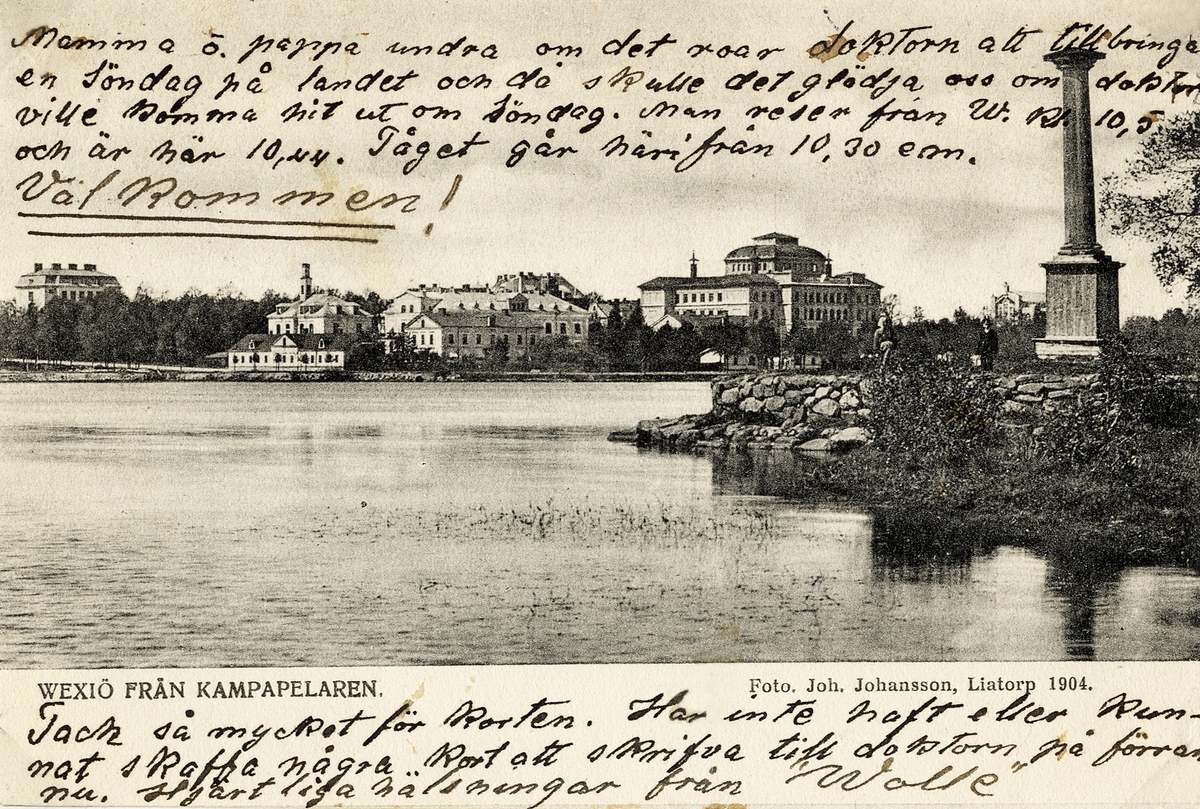 Mamma o. pappa undra om det roar doktorn att tillbringa
en söndag på landet och då skulle det glödja oss om doktorn
ville komma hit ut om söndag. Man reser från W. kl. 10,5
och är här 10,44. Tåget går härifrån 10,30 em.
Välkommen!
WEXIÖ FRÅN KAMPAPELAREN.
Foto. Joh. Johansson, Liatorp 1904.
Tack så mycket för korten. Har inte haft eller kun-
nat skaffa några kort att skrifva till doktorn på förrän
nu. Hjärtliga hälsningar från "Wolle"